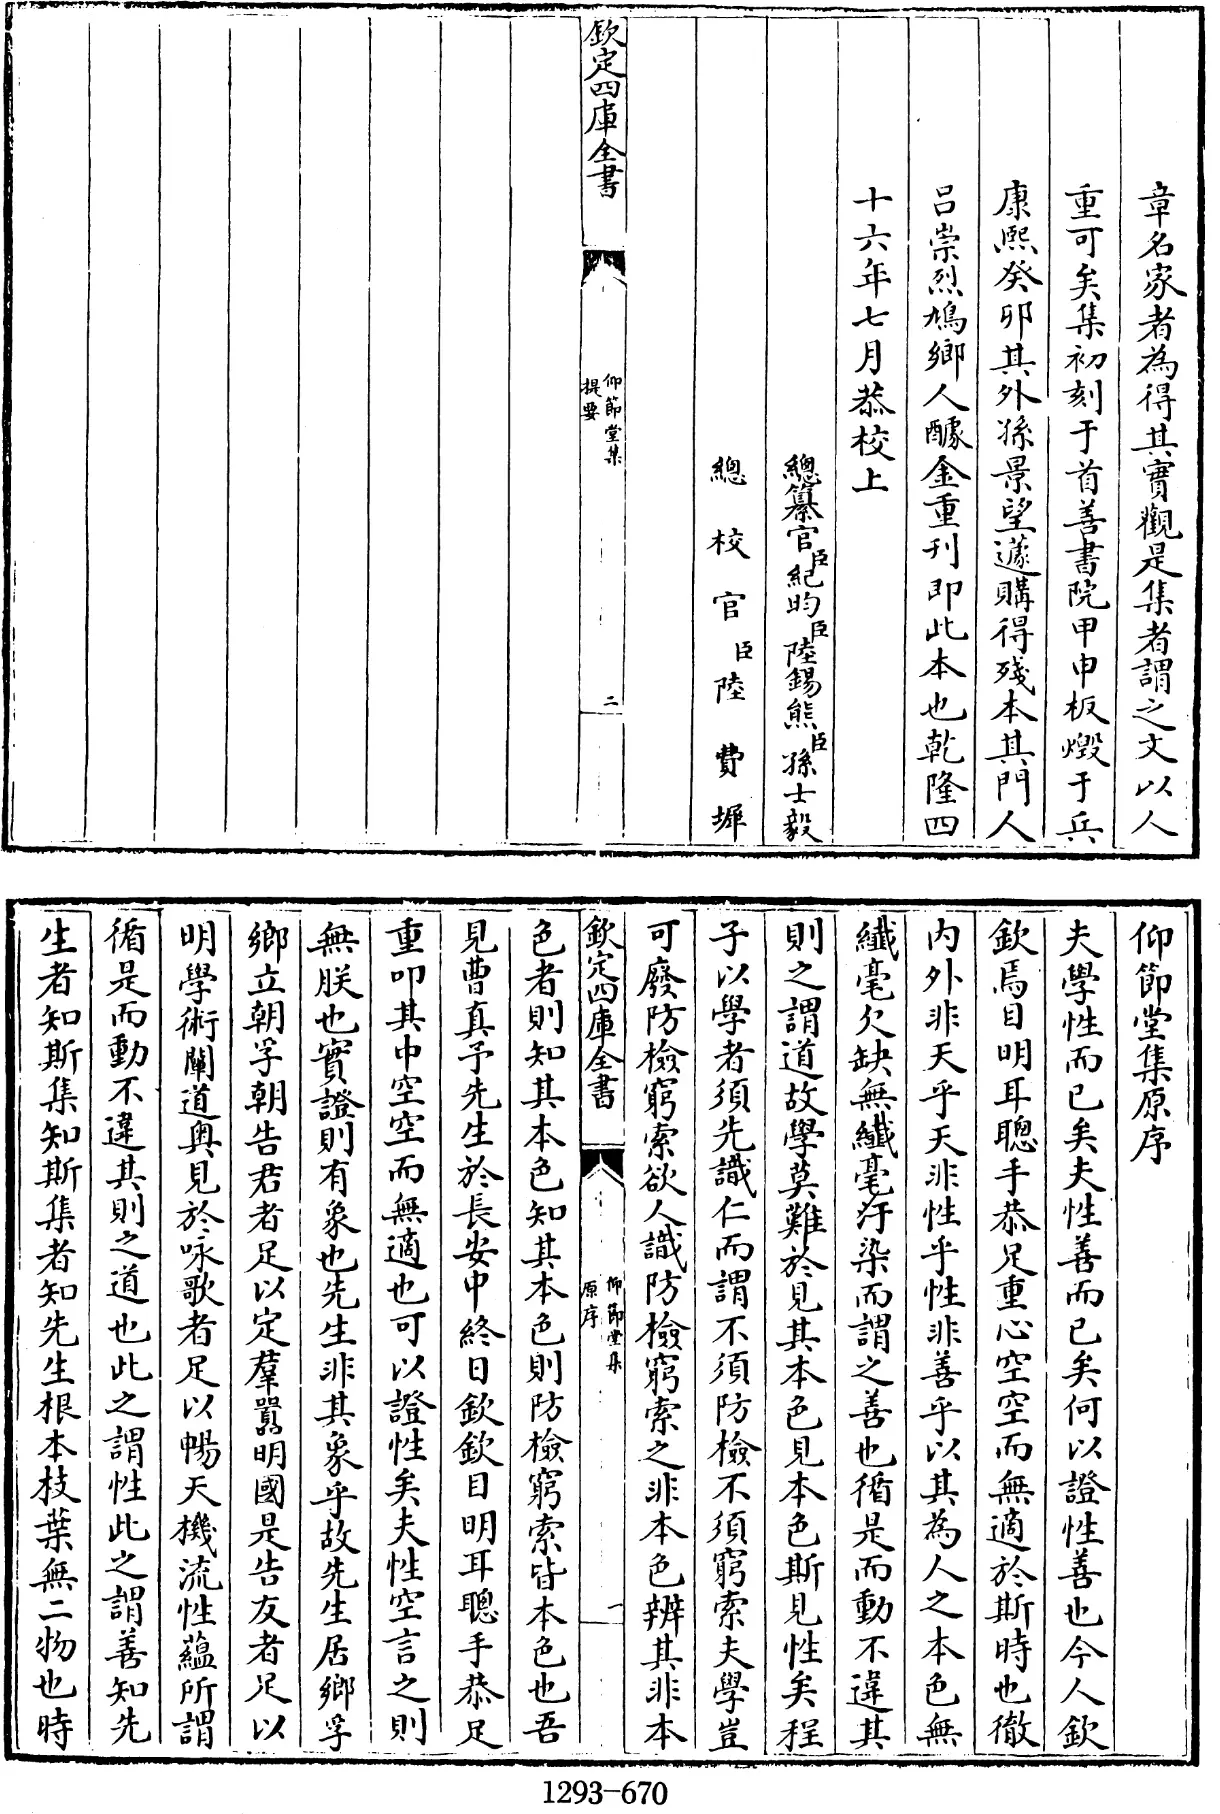 章名家者為得其實觀是集者謂之文以人
重可矣集初刻于首善書院甲申板燬于兵
康熙癸卯其外孫景望蘧購得殘本其門人
呂崇烈鳩鄉人醵金重刊即此本也乾隆四
十六年七月恭校上
總纂官臣紀昀臣陸錫熊臣孫士毅
總校官臣陸費墀
欽定四庫全書
仰節堂集
提要
二
仰節堂集原序
夫學性而已矣夫性善而已矣何以證性善也今人欽
欽焉目明耳聰手恭足重心空空而無適於斯時也徹
內外非天乎天非性乎性非善乎以其為人之本色無
纖毫欠缺無纖毫汙染而謂之善也循是而動不違其
則之謂道故學莫難於見其本色見本色斯見性矣程
子以學者須先識仁而謂不須防檢不須窮索夫學豈
可廢防檢窮索欲人識防檢窮索之非本色辨其非本
欽定四庫全書
仰節堂集
原序
一
色者則知其本色知其本色則防檢窮索皆本色也吾
見曹真予先生於長安中終日欽欽目明耳聰手恭足
重叩其中空空而無適也可以證性矣夫性空言之則
無朕也實證則有象也先生非其象乎故先生居鄉孚
鄉立朝孚朝告君者足以定羣囂明國是告友者足以
明學術闡道奧見於咏歌者足以暢天機流性蘊所謂
循是而動不違其則之道也此之謂性此之謂善知先
生者知斯集知斯集者知先生根本枝葉無二物也時
1293-670